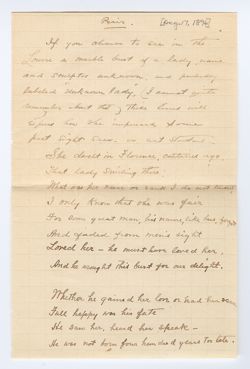 Paris. [Aug. 7, 1896]
If you chance to see in the
Louvre a marble bust of a lady, name
and sculptor unknown, and
labeled "unknown lady" (I cannot quite
remember about that) these lines will
the impression
She dwelt in Florence, centuries ago,
That lady smiling there.
What was her name or rank I do not know
I only know that she was fair
For some great man, his name, like hers forgot
And faded from men's sight
Loved her – he must have loved her,
And he wrought this bust for our delight.
Whether he gained her love or had her scorn
Full happy was his fate
He saw her, heard her speak –
He was not born four hundred years too late.